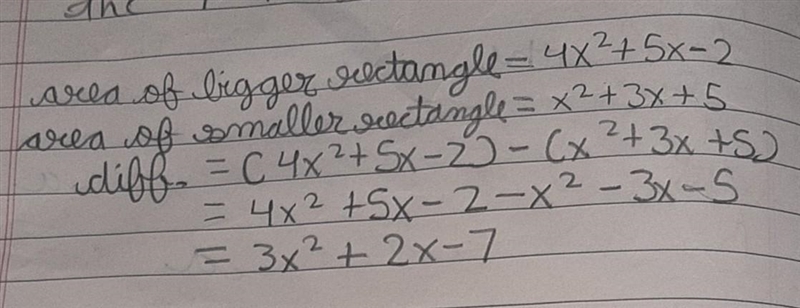 area of bigger rectangle = 4x² + 5x - 2
area of smaller rectangle = x² + 3x + 5
diff. = (4x² + 5x - 2) - (x² + 3x + 5)
= 4x² + 5x - 2 - x² - 3x - 5
= 3x² + 2x - 7